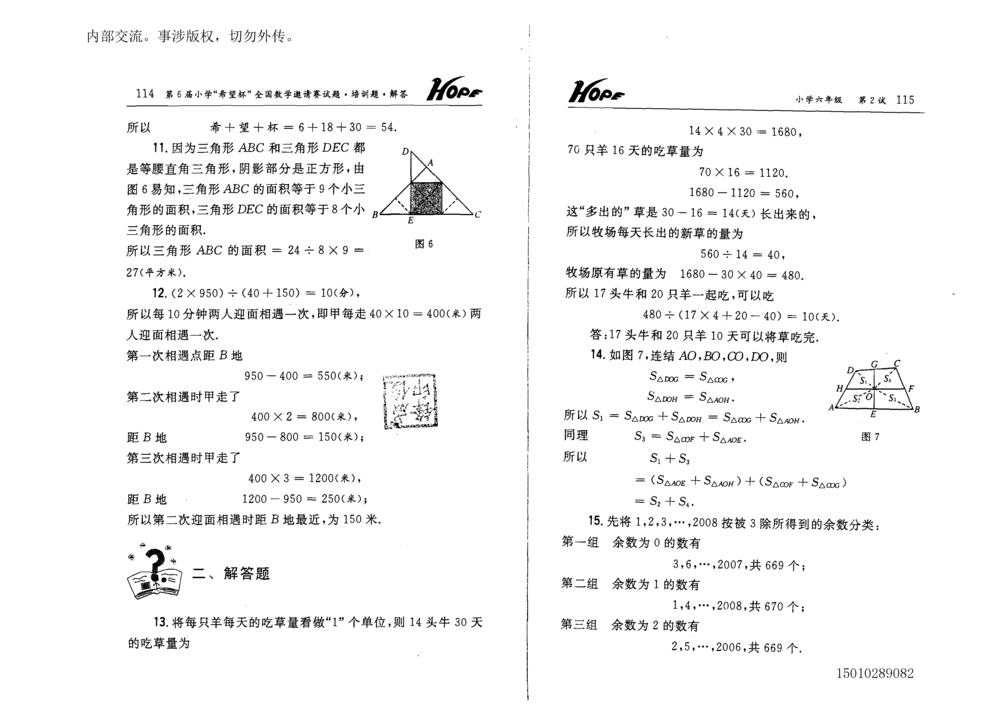 内部交流。事涉版权，切勿外传。
114 第6届小学“希望杯”全国数学邀请赛试题·培训题·解答 HOPE
所以 希＋望＋杯＝6＋18＋30＝54.
11.因为三角形 ABC 和三角形 DEC 都
是等腰直角三角形,阴影部分是正方形,由
图 6 易知,三角形 ABC 的面积等于 9 个小三
角形的面积,三角形 DEC 的面积等于 8 个小
三角形的面积.
所以三角形 ABC 的面积 = 24÷8×9 =
27(平方米).
D
A
B
E
C
图 6
12.(2×950)÷(40+150)=10(分),
所以每 10 分钟两人迎面相遇一次,即甲每走 40×10=400(米)两
人迎面相遇一次.
第一次相遇点距 B 地
950-400=550(米);
第二次相遇时甲走了
400×2=800(米),
距 B 地 950-800=150(米);
第三次相遇时甲走了
400×3=1200(米),
距 B 地 1200-950=250(米);
所以第二次迎面相遇时距 B 地最近,为 150 米.
二、解答题
13.将每只羊每天的吃草量看做“1”个单位,则 14 头牛 30 天
的吃草量为
HOPE 小学六年级 第2试 115
14×4×30=1680,
70 只羊 16 天的吃草量为
70×16=1120.
1680-1120=560,
这“多出的”草是 30-16=14(天)长出来的,
所以牧场每天长出的新草的量为
560÷14=40,
牧场原有草的量为 1680-30×40=480.
所以 17 头牛和 20 只羊一起吃,可以吃
480÷(17×4+20-40)=10(天).
答:17 头牛和 20 只羊 10 天可以将草吃完.
14.如图 7,连结 AO,BO,CO,DO,则
S△DOG = S△COG,
S△DOH = S△AOH.
所以 S₁ = S△DOG + S△DOH = S△COG + S△AOH.
同理 S₃ = S△COF + S△AOE.
所以 S₁+S₃
=(S△AOE+S△AOH)+(S△COF+S△COG)
=S₂+S₄.
D G C
S₁ S₄
H F
S₂ O S₃
A E B
图 7
15.先将 1,2,3,…,2008 按被 3 除所得到的余数分类:
第一组 余数为 0 的数有
3,6,…,2007,共 669 个;
第二组 余数为 1 的数有
1,4,…,2008,共 670 个;
第三组 余数为 2 的数有
2,5,…,2006,共 669 个.
15010289082